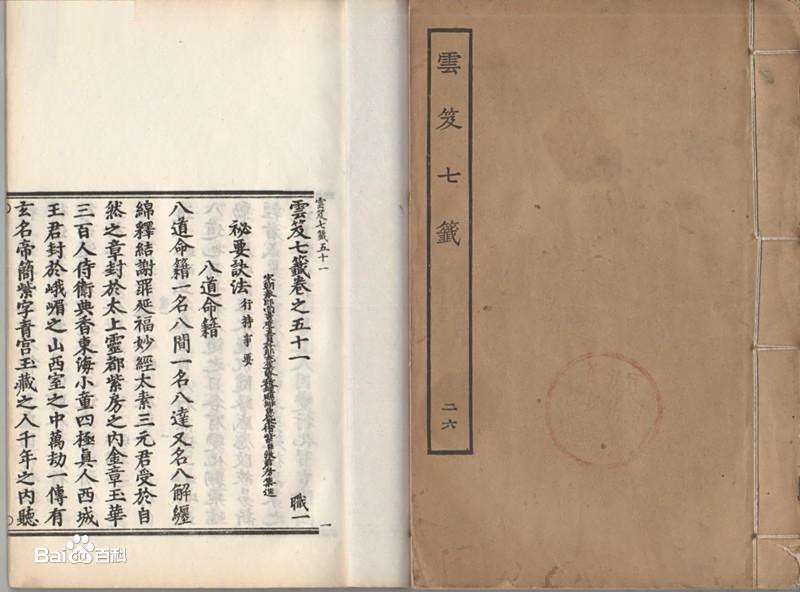 雲笈七籤五十一
雲笈七籤卷之五十一
職一
秘要訣法行持事要
八道命籍
八道命籍一名八間一名八達又名八解纏
綿釋結謝罪延福妙經太素三元君受於自
然之章封於太上靈都紫房之内金章玉華
三百人侍衛典香東海小童四極眞人西城
王君封於峨嵋之山西室之中萬劫一傳有
玄名帝簡紫字青宫玉藏之人千年之内聽
一
雲笈七籤
二六
Bai百科